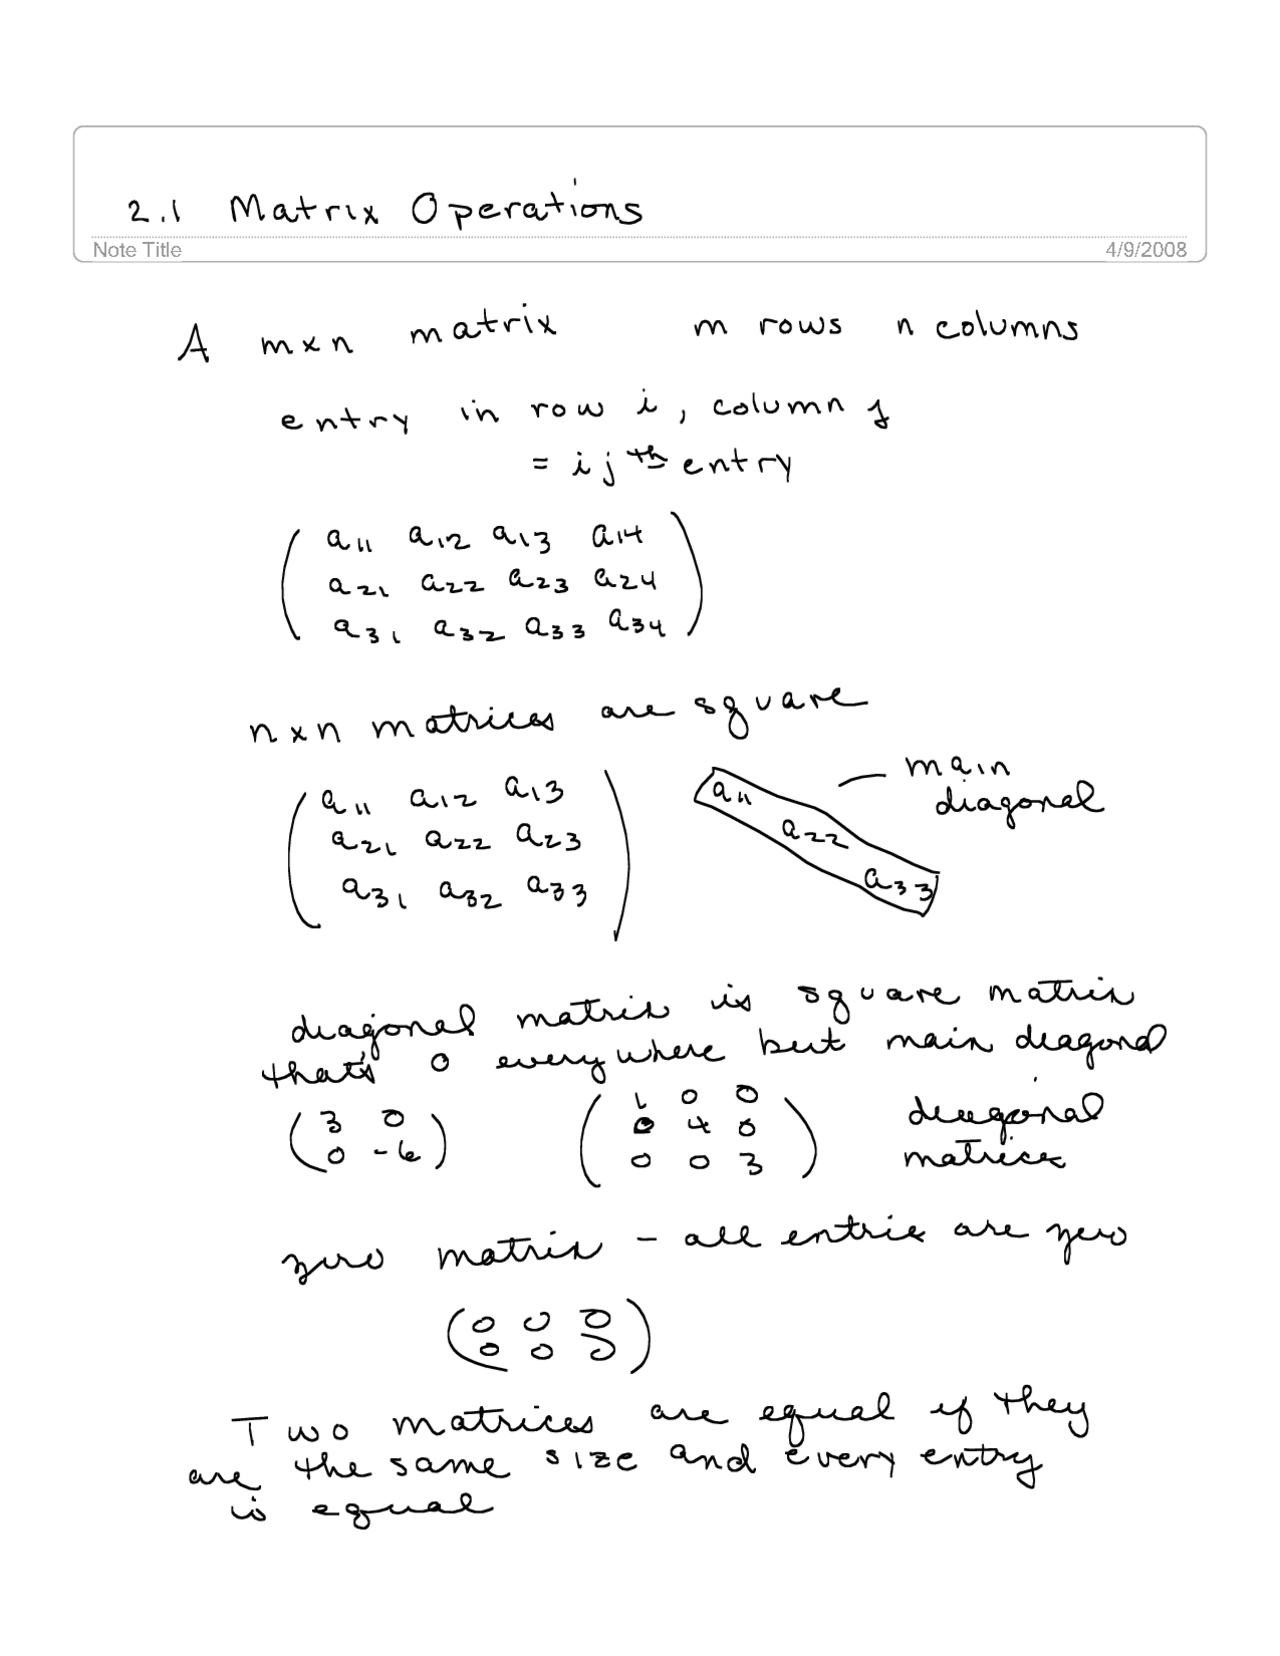 2.1 Matrix Operations
Note Title 4/9/2008
A m×n matrix m rows n columns
entry in row i, column j
= ij th entry
a11 a12 a13 a14
a21 a22 a23 a24
a31 a32 a33 a34
n×n matrices are square
a11 a12 a13 a11 main
diagonal
a21 a22 a23 a22
a31 a32 a33 a33
diagonal matrix is square matrix
that's 0 everywhere but main diagonal
(3 0 1 0 0 diagonal
0 -6) 0 4 0
0 0 3 matrices
zero matrix - all entries are zero
0 0 0
0 0 0
Two matrices are equal if they
are the same size and every entry
is equal